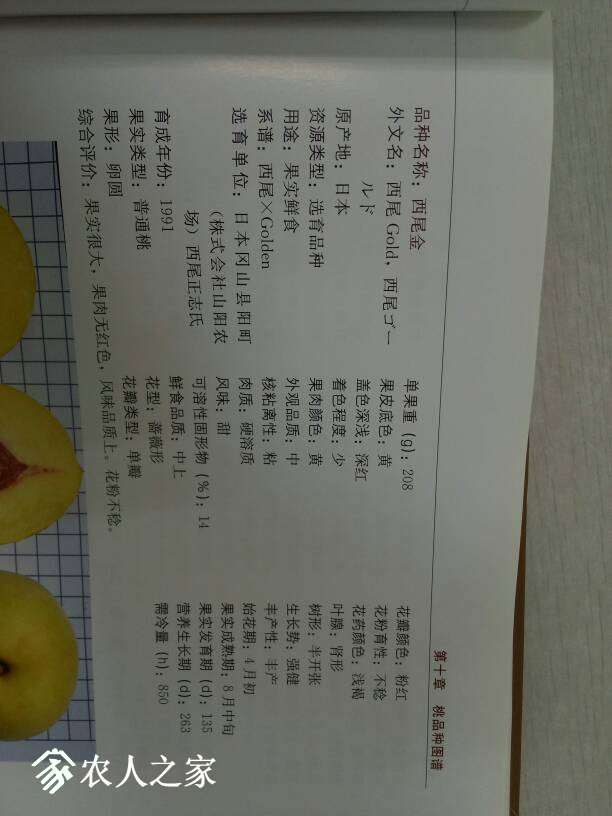 第十章 桃品种图谱
品种名称：西尾金
外文名：西尾 Gold，西尾ゴー
ルド
原产地：日本
资源类型：选育品种
用途：果实鲜食
系谱：西尾×Golden
选育单位：日本冈山县阳町
（株式会社山阳农
场）西尾正志氏
育成年份：1991
果实类型：普通桃
果形：卵圆
单果重（g）：208
果皮底色：黄
盖色深浅：深红
着色程度：少
果肉颜色：黄
外观品质：中
核粘离性：粘
肉质：硬溶质
风味：甜
可溶性固形物（%）：14
鲜食品质：中上
花型：蔷薇形
花瓣类型：单瓣
花瓣颜色：粉红
花粉育性：不稔
花药颜色：浅褐
叶腺：肾形
树形：半开张
生长势：强健
丰产性：丰产
始花期：4月初
果实成熟期：8月中旬
果实发育期（d）：135
营养生长期（d）：263
需冷量（h）：850
综合评价：果实很大，果肉无红色，风味品质上。花粉不稔。
农人之家